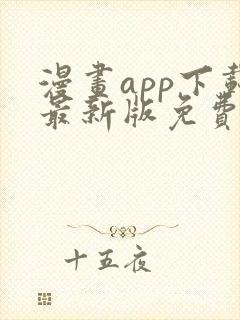 漫畫app下載
最新版免費
十五夜